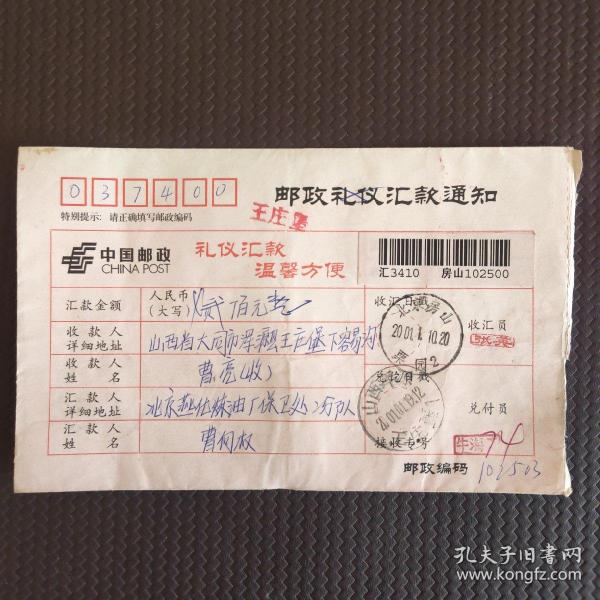 037400
邮政礼仪汇款通知
特别提示: 请正确填写邮政编码
王庄堡
中国邮政
CHINA POST
礼仪汇款
温馨方便
汇3410 房山102500
汇款金额
人民币
(大写)
贰佰元整
收汇日戳
北京房山
2001.1.10.20
栗园2
收汇员
收款人
详细地址
山西省大同市浑源县王庄堡下
收款人
姓名
曹亮(收)
兑讫日戳
山西
2001.01.19.12
兑付员
汇款人
详细地址
北京燕化炼油厂保卫处2分队
汇款人
姓名
曹
接收专号
74
邮政编码 102503
孔夫子旧书网
www.kongfz.com